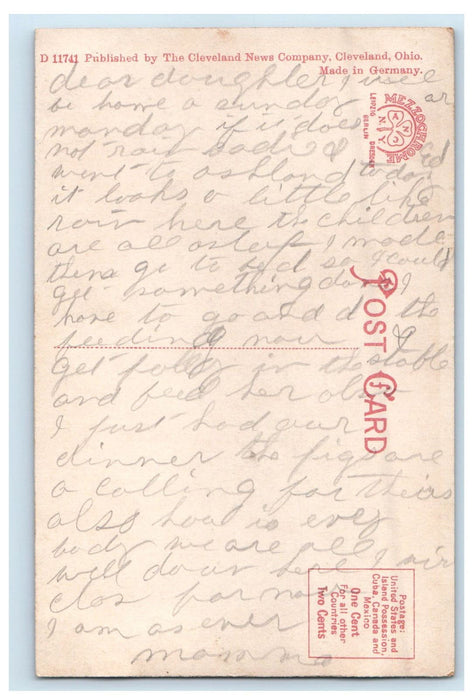 D 11741 Published by The Cleveland News Company, Cleveland, Ohio.
Made in Germany.
dear doughter, I will
be home a sunday or
monday if it does
not rain dad
went to ashland today
it looks a little like
rain here the children
are all asleep I made
them go to bed so I could
get something done I
have to go and do the
feeding now
get in the stable
and feed her also
I just had our
dinner the pigs are
a calling for theirs
also how is every
body we are all
well down here I will
close for now
I am as ever
mamma
MEZZOCHROME
LEIPZIG
BERLIN DRESDEN
N Y
POST CARD
Postage:
United States and
Island Possession,
Cuba, Canada and
Mexico
One Cent
For all other
Countries
Two Cents